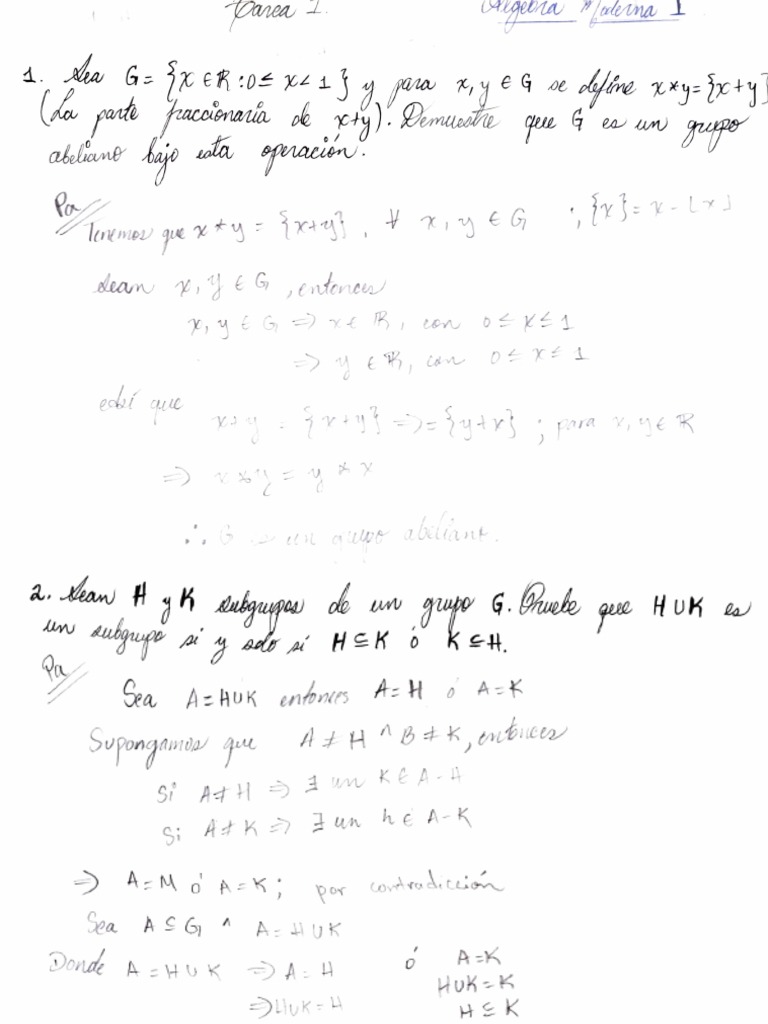 Tarea 1. Algebra Moderna I
1. Sea G = {x ∈ ℝ : 0 ≤ x < 1} y para x, y ∈ G se define x*y = {x+y}
(La parte fraccionaria de x+y). Demuestre que G es un grupo
abeliano bajo esta operación.
Pa//
Tenemos que x * y = {x+y}, ∀ x, y ∈ G ; {x} = x - ⌊x⌋
Sean x, y ∈ G, entonces
x, y ∈ G ⇒ x ∈ ℝ, con 0 ≤ x ≤ 1
⇒ y ∈ ℝ, con 0 ≤ x ≤ 1
así que
x*y = {x+y} ⇒ = {y+x} ; para x, y ∈ ℝ
⇒ x * y = y * x
∴ G es un grupo abeliano.
2. Sean H y K subgrupos de un grupo G. Pruebe que H∪K es
un subgrupo si y solo si H ⊆ K ó K ⊆ H.
Pa//
Sea A = H∪K entonces A = H ó A = K
Supongamos que A ≠ H ∧ B ≠ K, entonces
Si A ≠ H ⇒ ∃ un K ∈ A - H
Si A ≠ K ⇒ ∃ un h ∈ A - K
⇒ A = M ó A = K ; por contradicción
Sea A ⊆ G ∧ A = H∪K
Donde A = H∪K ⇒ A = H ó A = K
⇒ H∪K = H H∪K = K
H ⊆ K